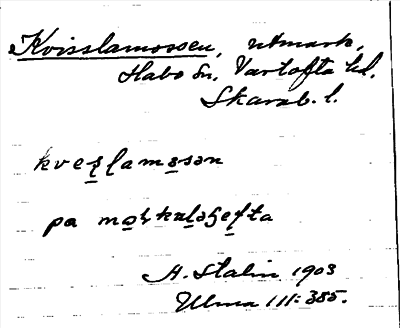 Kvisslamossen, utmark,
Habo sn, Vartofta hd.
Skarab. l.
kveslamosən
pa
H. Stalin 1903
Ulma 111:385.